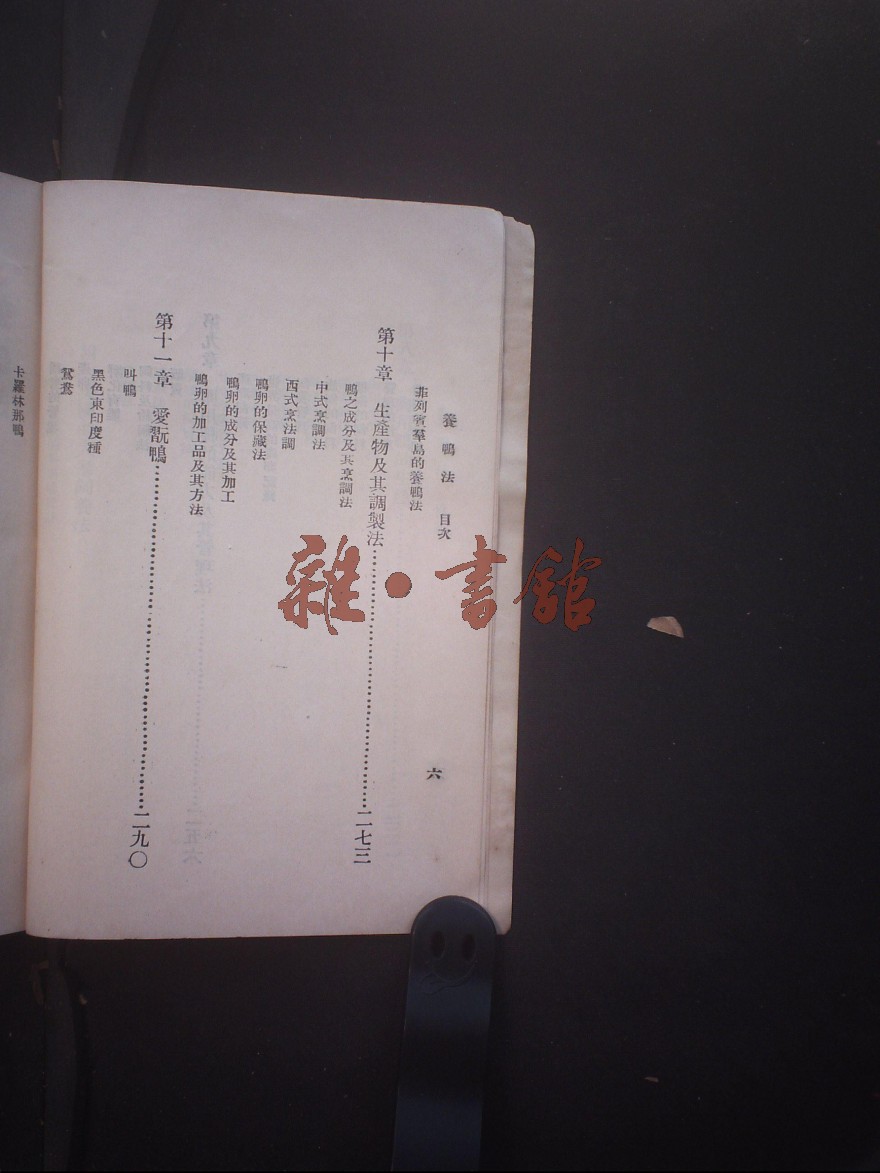 養鴨法 目次 六
菲列賓羣島的養鴨法
第十章 生產物及其調製法……二七三
鴨之成分及其烹調法
中式烹調法
西式烹法調
鴨卵的保藏法
鴨卵的成分及其加工
鴨卵的加工品及其方法
第十一章 愛翫鴨……二九〇
叫鴨
黑色東印度種
鴛鴦
卡羅林那鴨
雜•書館